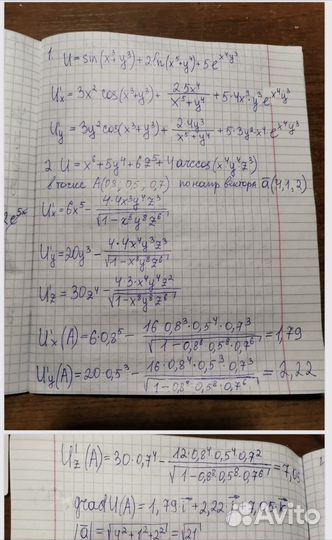 1. U = sin(x³+y³) + 2ln(x⁵+y⁴) + 5e^(x⁴y³)
U'x = 3x² cos(x³+y³) + (2·5x⁴)/(x⁵+y⁴) + 5·4x³·y³ e^(x⁴y³)
U'y = 3y² cos(x³+y³) + (2·4y³)/(x⁵+y⁴) + 5·3y² x⁴ · e^(x⁴y³)
2. U = x⁶ + 5y⁴ + 6z⁵ + 4 arccos(x⁴y⁴z³)
в точке A(0,8, 0,5, 0,7) по напр. вектора a̅(4,1,2)
U'x = 6x⁵ − (4·4x³y⁴z³)/√(1−x⁸y⁸z⁶)
U'y = 20y³ − (4·4x⁴y³z³)/√(1−x⁸y⁸z⁶)
U'z = 30z⁴ − (4·3·x⁴y⁴z²)/√(1−x⁸y⁸z⁶)
U'x(A) = 6·0,8⁵ − (16·0,8³·0,5⁴·0,7³)/√(1−0,8⁸·0,5⁸·0,7⁶) = 1,79
U'y(A) = 20·0,5³ − (16·0,8⁴·0,5³·0,7³)/√(1−0,8⁸·0,5⁸·0,7⁶) = 2,22
U'z(A) = 30·0,7⁴ − (12·0,8⁴·0,5⁴·0,7²)/√(1−0,8⁸·0,5⁸·0,7⁶) = 7,05
grad U(A) = 1,79·i̅ + 2,22·
|a̅| = √(4²+1²+2²) = √21
Avito